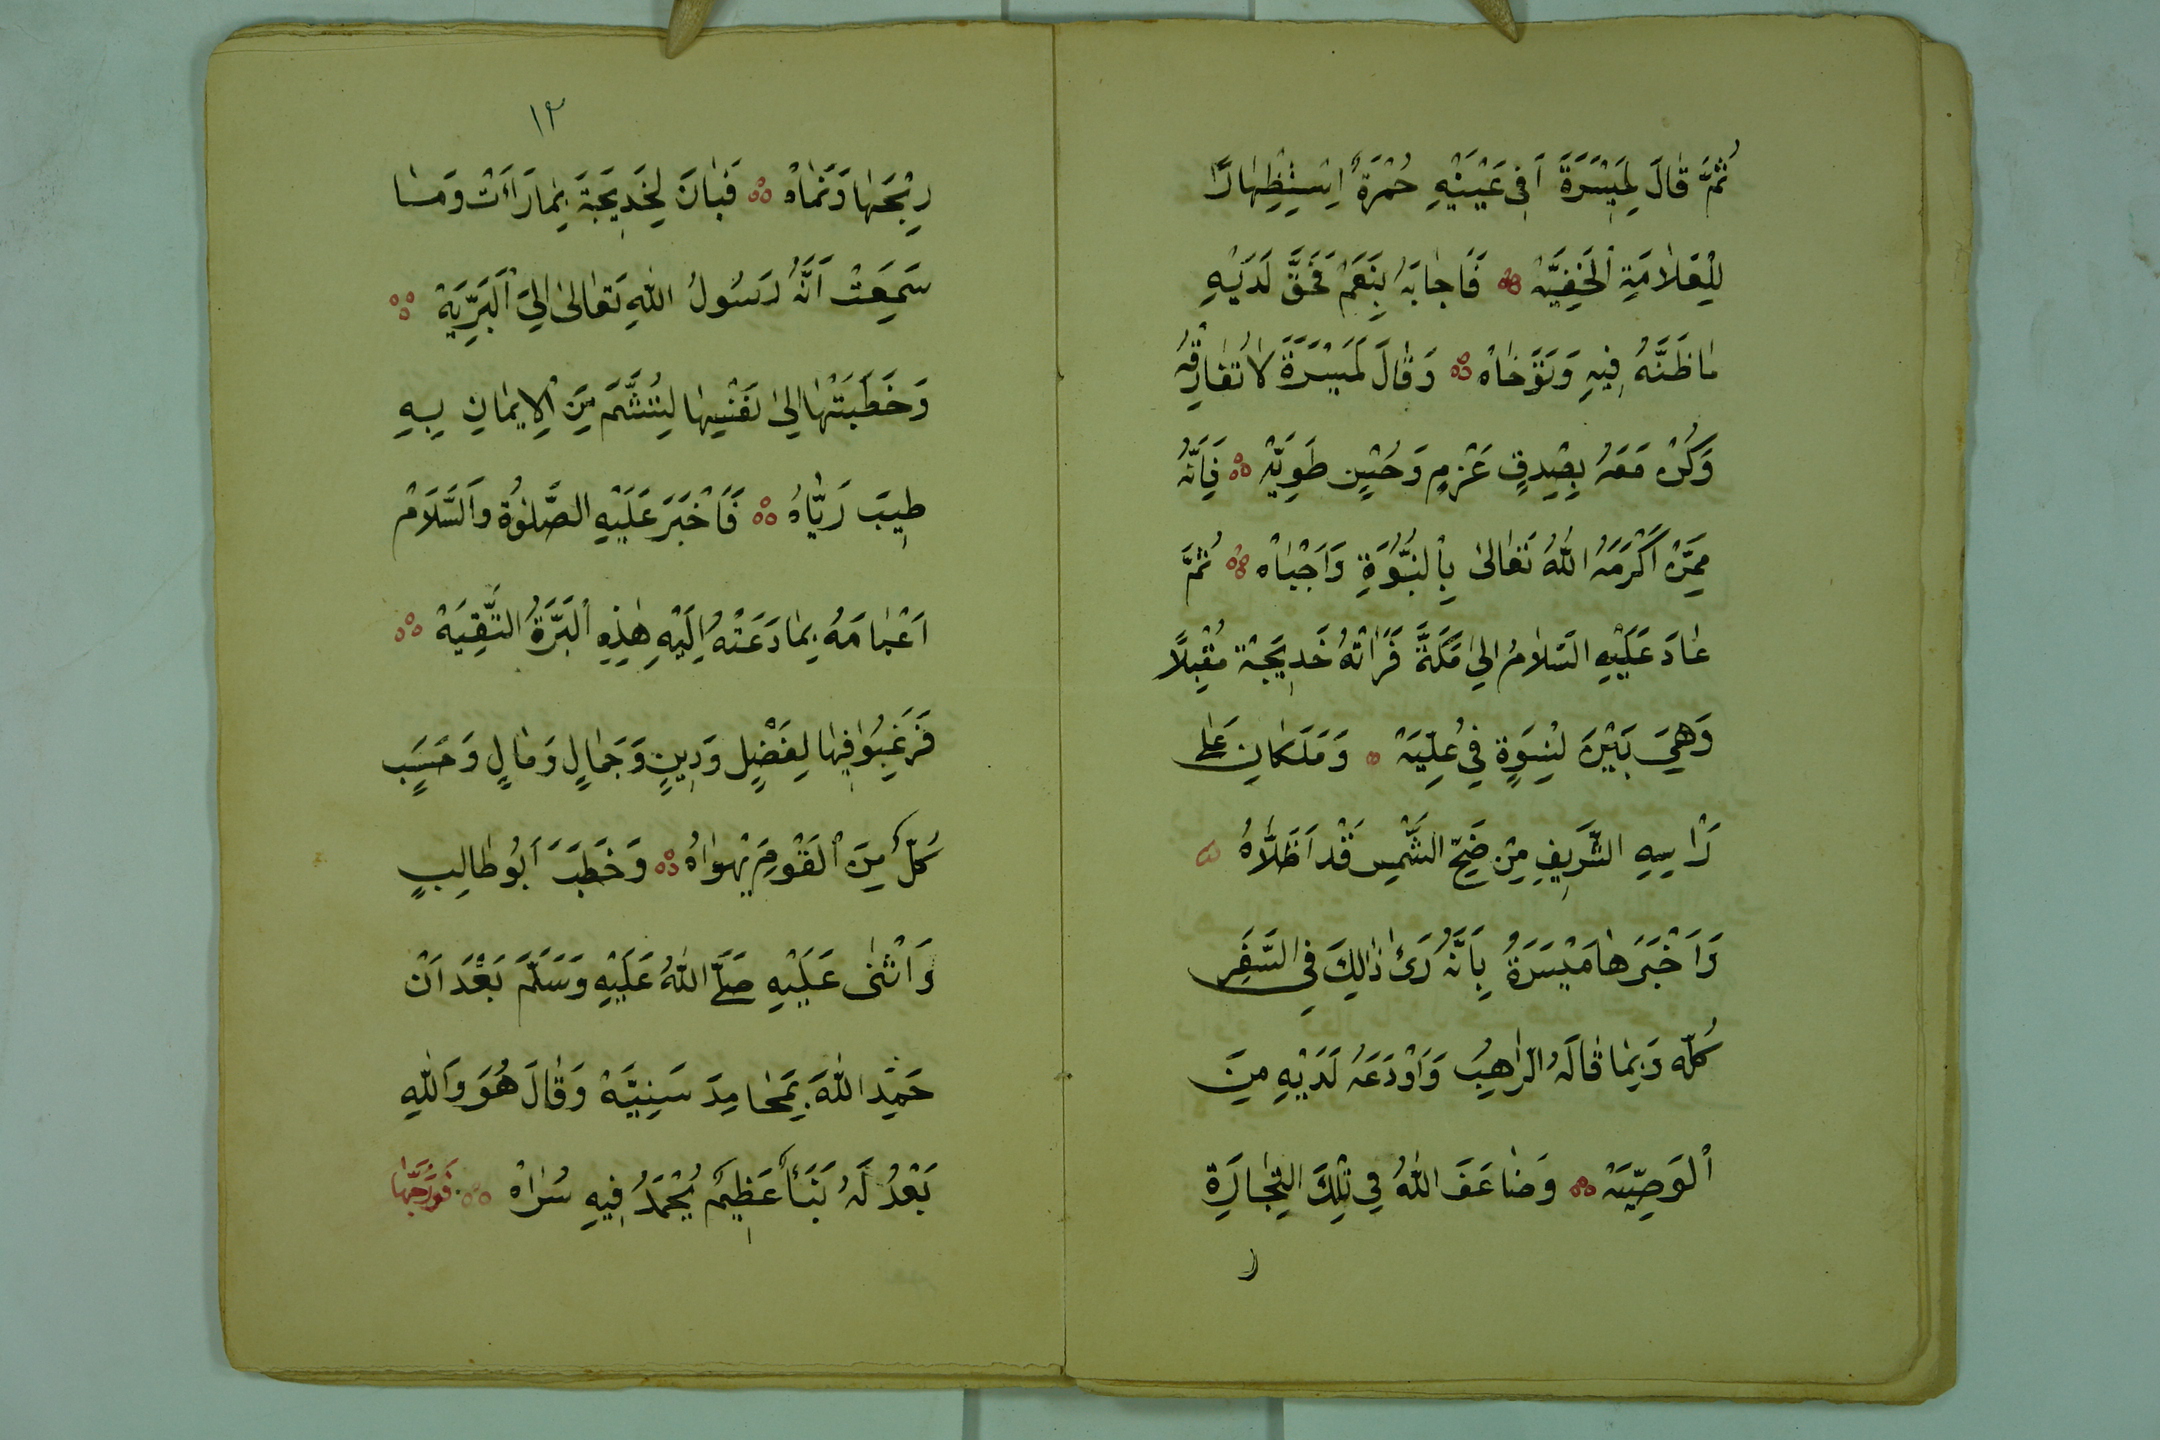 ثُمَّ قَالَ لِمَيْسَرَةَ اَفِي عَيْنَيْهِ حُمْرَةٌ اِسْتِظْهَارًا
لِلْعَلَامَةِ الْخَفِيَّهْ ۞ فَاَجَابَهُ بِنَعَمْ فَحَقَّ لَدَيْهِ
مَاظَنَّهُ فِيهِ وَتَوَخَّاهْ ۞ وَقَالَ لِمَيْسَرَةَ لَاتُفَارِقْهُ
وَكُنْ مَعَهُ بِصِدْقِ عَزْمٍ وَحُسْنِ طَوِيَّهْ ۞ فَاِنَّهُ
مِمَّنْ اَكْرَمَهُ اللّٰهُ تَعَالَى بِالنُّبُوَّةِ وَاَجْبَاهْ ۞ ثُمَّ
عَادَ عَلَيْهِ السَّلَامُ اِلَى مَكَّةَ فَرَاَتْهُ خَدِيجَةُ مُقْبِلًا
وَهِيَ بَيْنَ نِسْوَةٍ فِي عُلِّيَهْ ۞ وَمَلَكَانِ عَلَى
رَاْسِهِ الشَّرِيفِ مِنْ ضِحِّ الشَّمْسِ قَدْ اَظَلَّاهُ ۞
وَاَخْبَرَهَا مَيْسَرَةُ بِاَنَّهُ رَىَٔ ذٰلِكَ فِي السَّفَرِ
كُلِّه وَبِمَا قَالَهُ الرَّاهِبُ وَاَوْدَعَهُ لَدَيْهِ مِنَ
الْوَصِيَّهْ ۞ وَضَاعَفَ اللّٰهُ فِي تِلْكَ التِّجَارَةِ
ر
١٢
رِبْحَهَا وَنَمَّاهْ ۞ فَبَانَ لِخَدِيجَةَ بِمَا رَاَتْ وَمَا
سَمِعَتْ اَنَّهُ رَسُولُ اللّٰهِ تَعَالَى اِلَى الْبَرِّيَهْ ۞
وَخَطَبَتْهَا اِلَى نَفْسِهَا لِتُشَمَّ مِنَ الْاِيمَانِ بِهِ
طِيبَ رَيَّاهُ ۞ فَاَخْبَرَ عَلَيْهِ الصَّلٰوةُ وَالسَّلَامْ
اَعْمَامَهُ بِمَا دَعَتْهُ اِلَيْهِ هٰذِهِ الْبَرَّةُ التَّقِيَهْ ۞
فَرَغِبُوا فِيهَا لِفَضْلٍ وَدِينٍ وَجَمَالٍ وَمَالٍ وَحَسَبٍ
كُلٌّ مِنَ الْقَوْمِ يَهْوَاهُ ۞ وَخَطَبَ اَبُو طَالِبٍ
وَاَثْنٰى عَلَيْهِ صَلَّى اللّٰهُ عَلَيْهِ وَسَلَّمَ بَعْدَ اَنْ
حَمِدَ اللّٰهَ بِمَحَامِدَ سَنِيَّهْ وَقَالَ هُوَ وَاللّٰهِ
بَعْدُ لَهُ نَبَأٌ عَظِيمٌ يُحْمَدُ فِيهِ سُرَاهْ ۞ فَزَوَّجَهَا